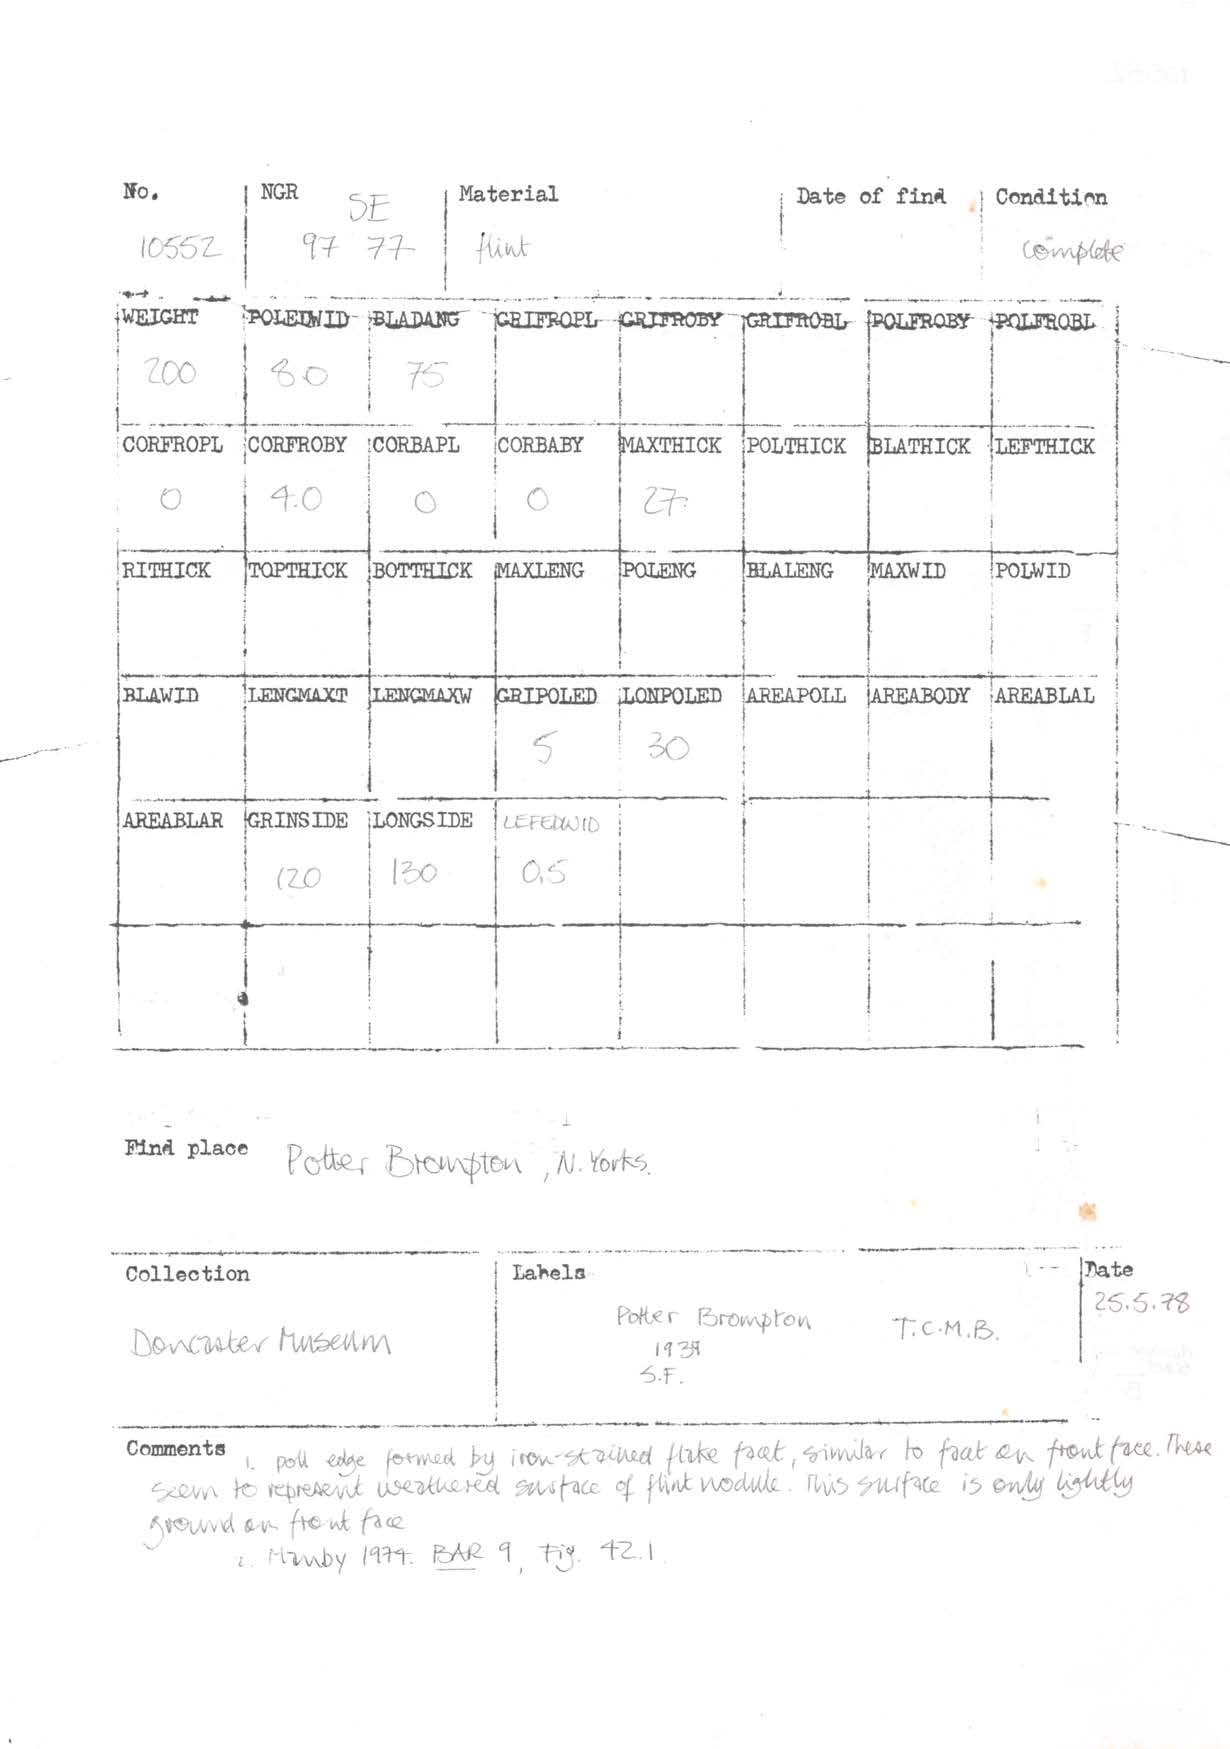 No. NGR Material Date of find Condition
SE
10552 97 77 flint complete
WEIGHT POLEDWID BLADANG GRIFROPL GRIFROBY GRIFROBL POLFROBY POLFROBL
200 8.0 75
CORFROPL CORFROBY CORBAPL CORBABY MAXTHICK POLTHICK BLATHICK LEFTHICK
0 4.0 0 0 27
RITHICK TOPTHICK BOTTHICK MAXLENG POLENG BLALENG MAXWID POLWID
BLAWID LENGMAXT LENGMAXW GRIPOLED LONPOLED AREAPOLL AREABODY AREABLAL
5 30
AREABLAR GRINSIDE LONGSIDE LEFEDWID
120 130 0.5
Find place Potter Brompton, N. Yorks.
Collection Labels Date
25.5.78
Potter Brompton T.C.M.B.
Doncaster Museum
S.F.
Comments 1. poll edge formed by iron-stained flake facet, similar to facet on front face. These
seem to represent weathered surface of flint nodule. This surface is only lightly
ground on front face
2. Manby 1974. BAR 9, Fig. 42.1.